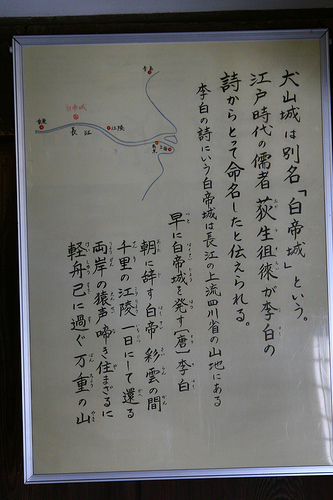 犬山城は別名「白帝城」という。
江戸時代の儒者 荻生徂徠が李白の
詩からとって命名したと伝えられる。
李白の詩にいう白帝城は長江の上流四川省の山地にある
早に白帝城を発す〔唐〕李白
朝に辞す白帝 彩雲の間
千里の江陵 一日にして還る
両岸の猿声啼き住まざるに
軽舟已に過ぐ 万重の山
白帝城
江陵
長江
重慶
上海